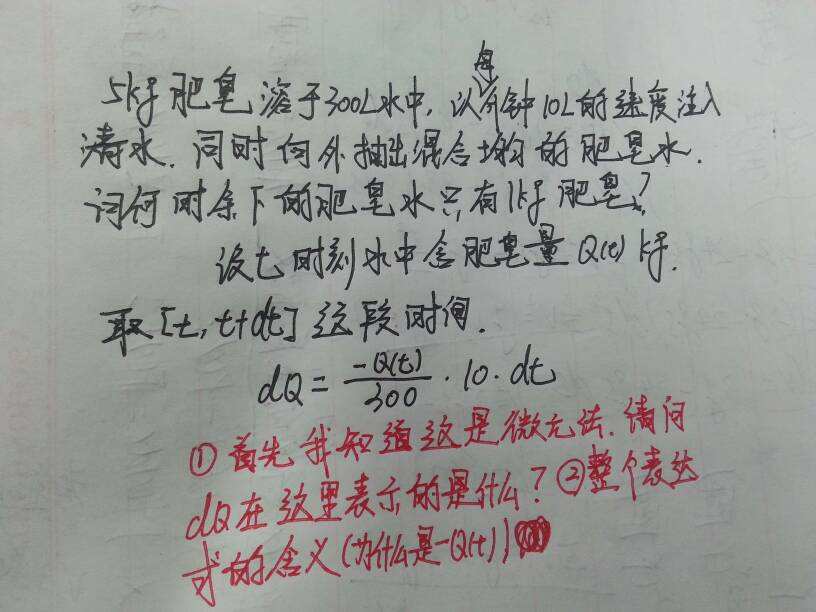 5kg肥皂溶于300L水中,以每分钟10L的速度注入
清水.同时向外抽出混合均匀的肥皂水.
问何时余下的肥皂水只有1kg肥皂?
设t时刻水中含肥皂量Q(t)kg.
取[t,t+dt]这段时间.
dQ = -Q(t)/300 · 10 · dt
①首先我知道这是微元法.请问
dQ在这里表示的是什么?②整个表达
式的含义(为什么是-Q(t))